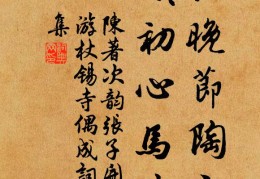 晚節陶
初心馬
陳著次韻張子開
游杖錫寺偶成詞
集